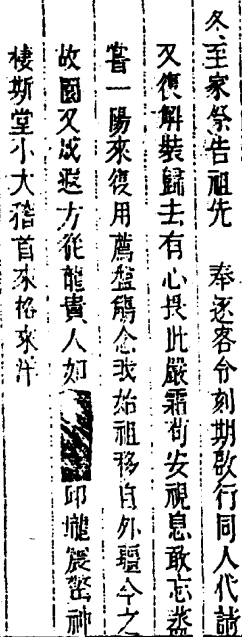 冬至家祭告祖先 奉逐客令刻期啟行同人代請
又復解裝歸去有心畏此嚴霜苟安視息敢忘烝
嘗一陽來復用薦盤觴念我始祖移自外疆今之
故園又成遐方從龍貴人如 邱壠窀窆神
棲斯堂小大稽首來格來汴